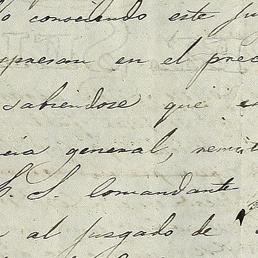 consciendo este Ju
spresan en el prec
sabiendose que
cia general, remit
S. S. Comandante
al juzgado de